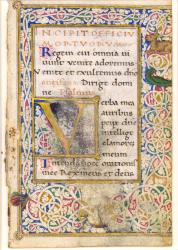 INCIPIT OFFICIV
MORTVORVM
Regem cui omnia vi
uunt venite adoremus
Venite et exultemus dno
Dirige dom
ne Psalmus
Verba mea
auribus
percipe dne
intellige
clamorem
meum
Intende voci orationis
mee Rex meus et deus